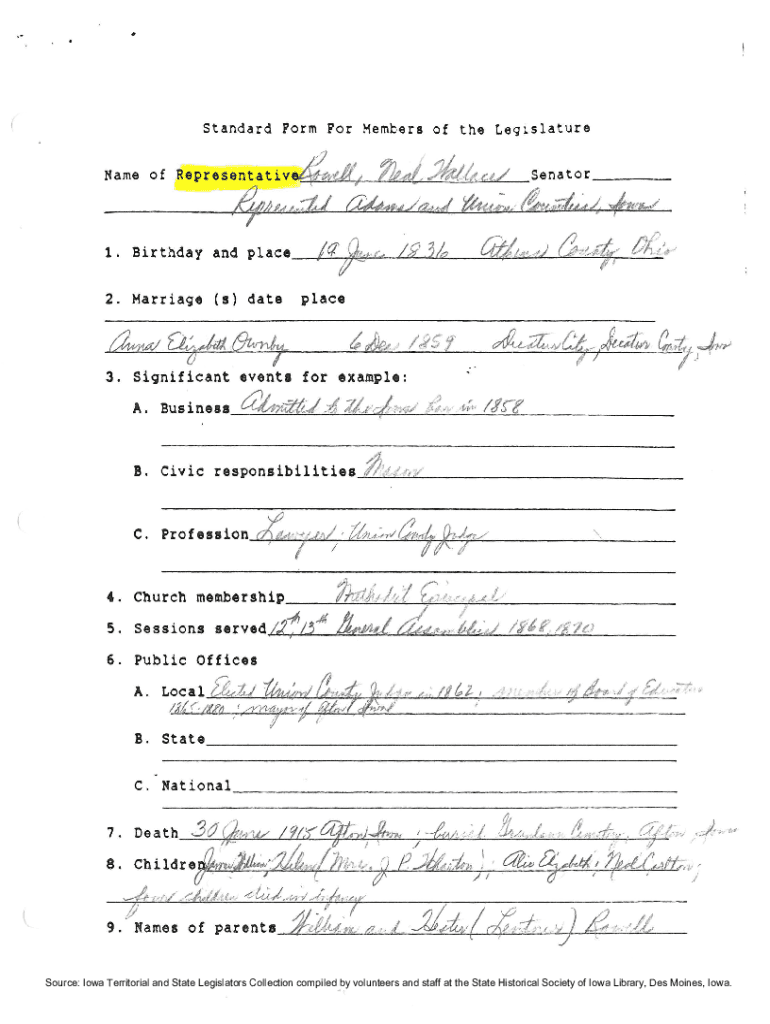 Standard Form For Members of the Legislature
Name of Representative Rowell, Neal Wallace Senator
Represented Adams and Union Counties, Iowa
1. Birthday and place 19 June 1836 Athens County, Ohio
2. Marriage (s) date place
Anna Elizabeth Ownby 6 Dec 1859 Decatur City, Decatur County, Iowa
3. Significant events for example:
A. Business Admitted to the Iowa bar in 1858
B. Civic responsibilities Mason
C. Profession Lawyer; Union County Judge
4. Church membership Methodist Episcopal
5. Sessions served 12th, 13th General Assemblies 1868, 1870
6. Public Offices
A. Local Elected Union County Judge in 1862; member of Board of Education
1865-1880; mayor of Afton Iowa
B. State
C. National
7. Death 30 June 1915 Afton, Iowa; buried Cemetery, Afton, Iowa
8. Children Helen (Mrs. J. P. Wharton); Alice Elizabeth; Ned Carlton;
four children died in infancy
9. Names of parents William and Hester (Lentner) Rowell
Source: Iowa Territorial and State Legislators Collection compiled by volunteers and staff at the State Historical Society of Iowa Library, Des Moines, Iowa.